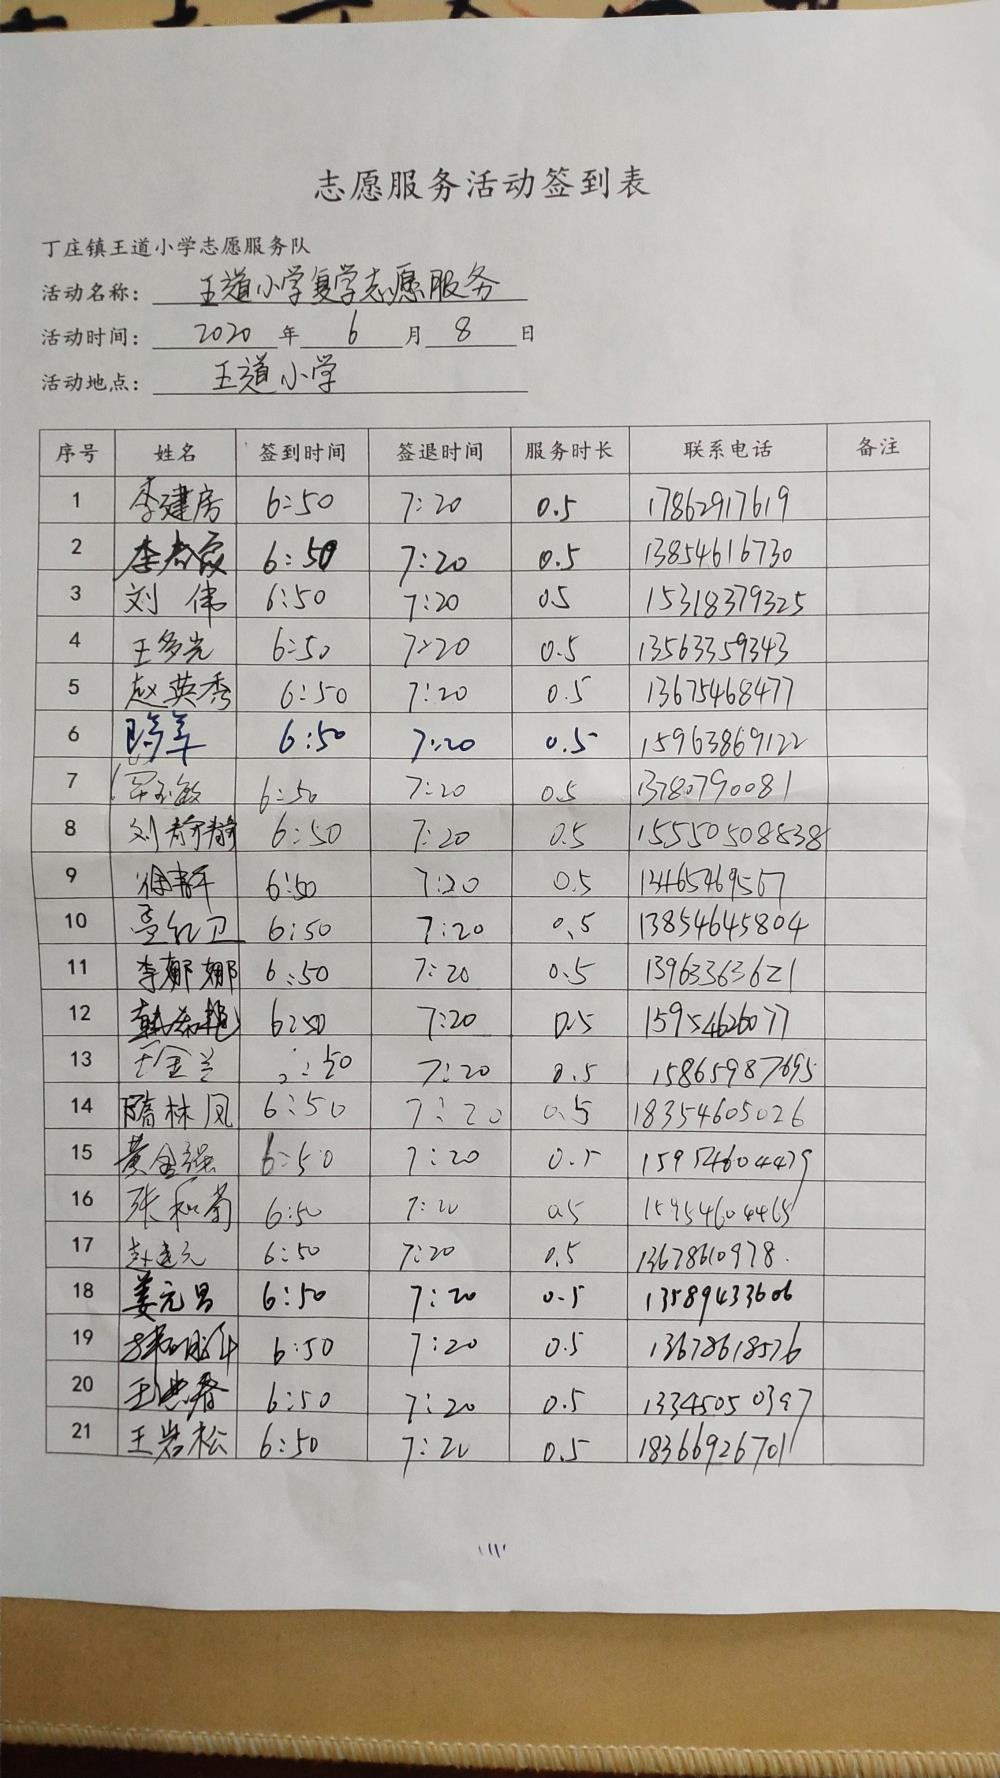 志愿服务活动签到表
丁庄镇王道小学志愿服务队
活动名称: 王道小学复学志愿服务
活动时间: 2020 年 6 月 8 日
活动地点: 王道小学
序号 姓名 签到时间 签退时间 服务时长 联系电话 备注
1 李建房 6:50 7:20 0.5 17862917619
2 6:50 7:20 0.5 13854616730
3 刘伟 6:50 7:20 0.5 15318379325
4 王多光 6:50 7:20 0.5 13563359343
5 赵英秀 6:50 7:20 0.5 13675468477
6 6:50 7:20 0.5 15963869122
7 6:50 7:20 0.5 13780790081
8 刘静静 6:50 7:20 0.5 15550508838
9 6:50 7:20 0.5 13465469567
10 6:50 7:20 0.5 13854645804
11 李娜娜 6:50 7:20 0.5 13963363621
12 6:50 7:20 0.5 15954626077
13 王金兰 :50 7:20 0.5 15865987695
14 隋林凤 6:50 7:20 0.5 18354605026
15 黄金强 6:50 7:20 0.5 15954604479
16 张和菊 6:50 7:20 0.5 15954604465
17 6:50 7:20 0.5 13678610978
18 姜元昌 6:50 7:20 0.5 13589433606
19 6:50 7:20 0.5 13678618576
20 6:50 7:20 0.5 13345050397
21 王岩松 6:50 7:20 0.5 18366926701